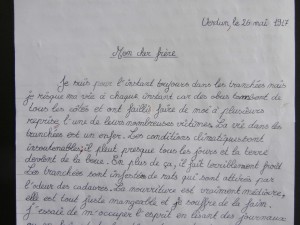 Verdun, le 26 mai 1917
Mon cher frère
Je suis pour l'instant toujours dans les tranchées mais
je risque ma vie à chaque instant car des obus tombent de
tous les côtés et ont failli faire de moi à plusieurs
reprises l'une de leurs nombreuses victimes. La vie dans les
tranchées est un enfer. Les conditions climatiques sont
insoutenables; il pleut presque tous les jours et la terre
devient de la boue. En plus de ça, il fait terriblement froid.
Les tranchées sont infestées de rats qui sont attirés par
l'odeur des cadavres. La nourriture est vraiment médiocre,
elle est tout juste mangeable et je souffre de la faim.
J'essaie de m'occuper l'esprit en lisant des journaux